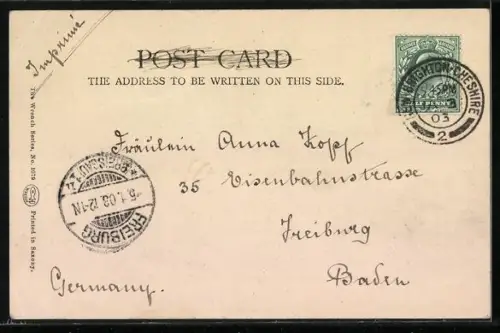 Imprimé
POST CARD
THE ADDRESS TO BE WRITTEN ON THIS SIDE.
NEW BRIGHTON·CHESHIRE
03
2
Fräulein Anna Kopf
35 Eisenbahnstrasse
Freiburg
Baden
Germany.
FREIBURG
5.1.03.12-1N
*(BREISGAU)*
The Wrench Series, No.
Printed in Saxony.